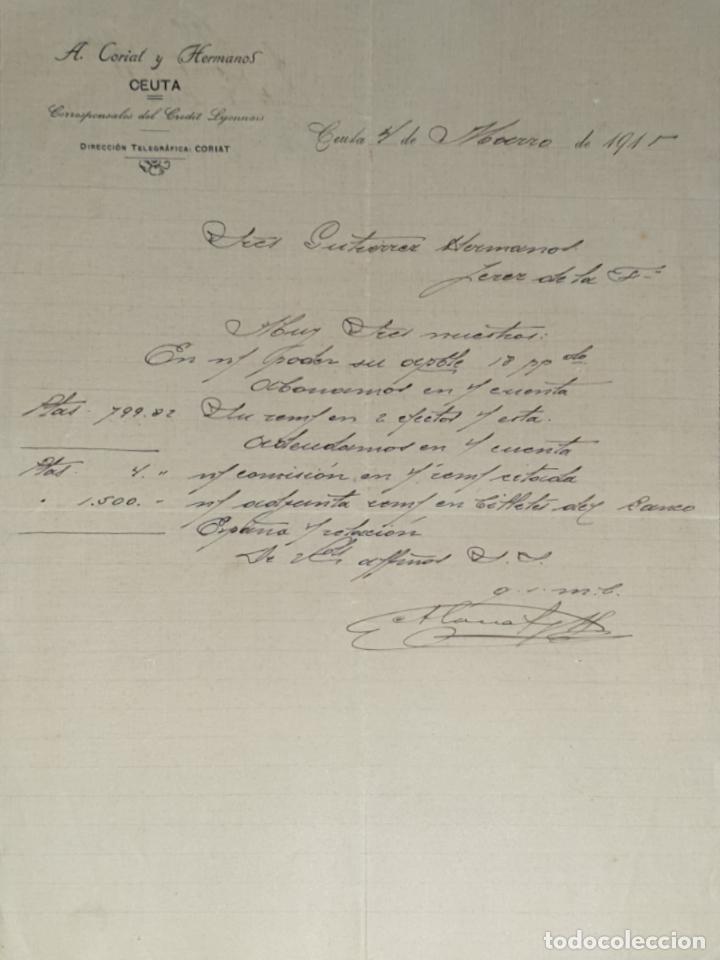 A. Coriat y Hermanos
CEUTA
Corresponsales del Credit Lyonnais
DIRECCIÓN TELEGRÁFICA: CORIAT
Ceuta 4 de de 191
Sres Gutierrez Hermanos
Jerez de la Fª
Muy Sres nuestros:
En n/ poder su apble 18 ppdo
Abonamos en s/ cuenta
Ptas. 799.82 Su rem/ en 2 efectos s/ esta.
Adeudamos en s/ cuenta
Ptas 4. " n/ comisión en s/ rem/ citada
" 1.500. - n/ adjunta rem/ en billetes del Banco
España s/ relación
De Vds affmos S. S.
q. s. m. b.
todocoleccion
todocoleccion.net